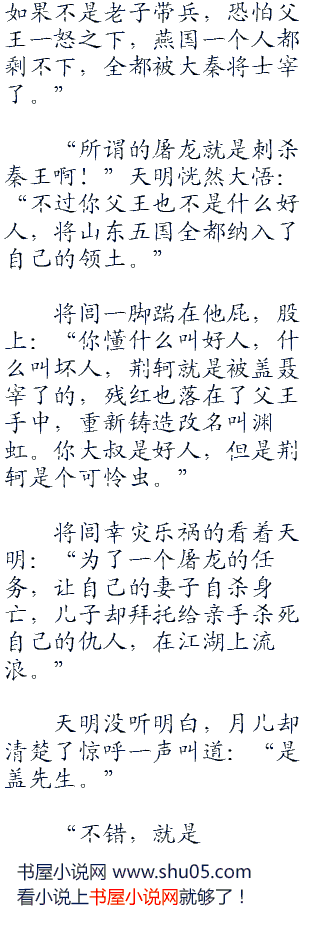 如果不是老子带兵，恐怕父
王一怒之下，燕国一个人都
剩不下，全都被大秦将士宰
了。”
“所谓的屠龙就是刺杀
秦王啊！”天明恍然大悟：
“不过你父王也不是什么好
人，将山东五国全都纳入了
自己的领土。”
将闾一脚踹在他屁，股
上：“你懂什么叫好人，什
么叫坏人，荆轲就是被盖聂
宰了的，残红也落在了父王
手中，重新铸造改名叫渊
虹。你大叔是好人，但是荆
轲是个可怜虫。”
将闾幸灾乐祸的看着天
明：“为了一个屠龙的任
务，让自己的妻子自杀身
亡，儿子却拜托给亲手杀死
自己的仇人，在江湖上流
浪。”
天明没听明白，月儿却
清楚了惊呼一声叫道：“是
盖先生。”
“不错，就是
书屋小说网 www.shu05.com
看小说上书屋小说网就够了！